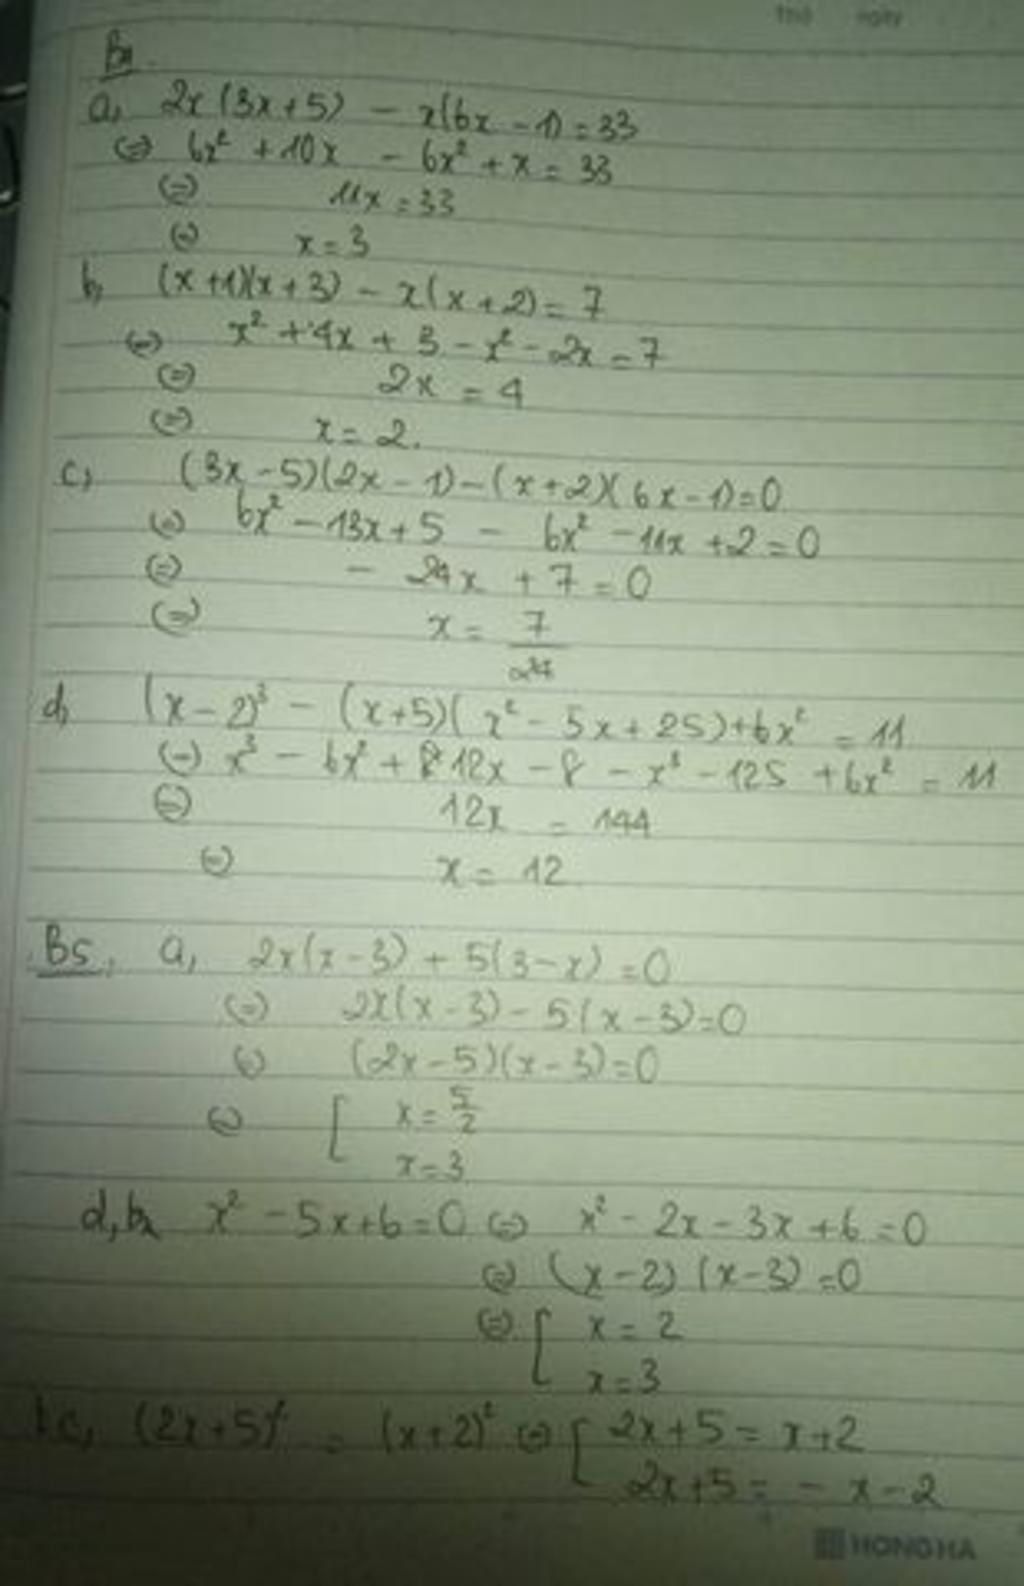 Thứ ngày
a, 2x(3x+5) - x(6x-1)=33
(=) 6x² + 10x - 6x² + x = 33
(=) 11x = 33
(=) x = 3
b, (x+1)(x+3) - x(x+2) = 7
(=) x² + 4x + 3 - x² - 2x = 7
(=) 2x = 4
(=) x = 2.
c, (3x-5)(2x-1)-(x+2)(6x-1)=0
(=) 6x² - 13x + 5 - 6x² - 11x + 2 = 0
(=) - 24x + 7 = 0
(=) x = 7/24
d, (x-2)³ - (x+5)(x² - 5x + 25) + 6x² = 11
(=) x³ - 6x² + 12x - 8 - x³ - 125 + 6x² = 11
(=) 12x = 144
(=) x = 12
B5, a, 2x(x-3) + 5(3-x) = 0
(=) 2x(x-3) - 5(x-3)=0
(=) (2x-5)(x-3)=0
(=) [ x = 5/2
x = 3
d, x² - 5x + 6 = 0 (=) x² - 2x - 3x + 6 = 0
(=) (x-2)(x-3)=0
(=) [ x = 2
x = 3
c, (2x+5)² = (x+2)² (=) [ 2x+5 = x+2
2x+5 = - x - 2
HONG HA